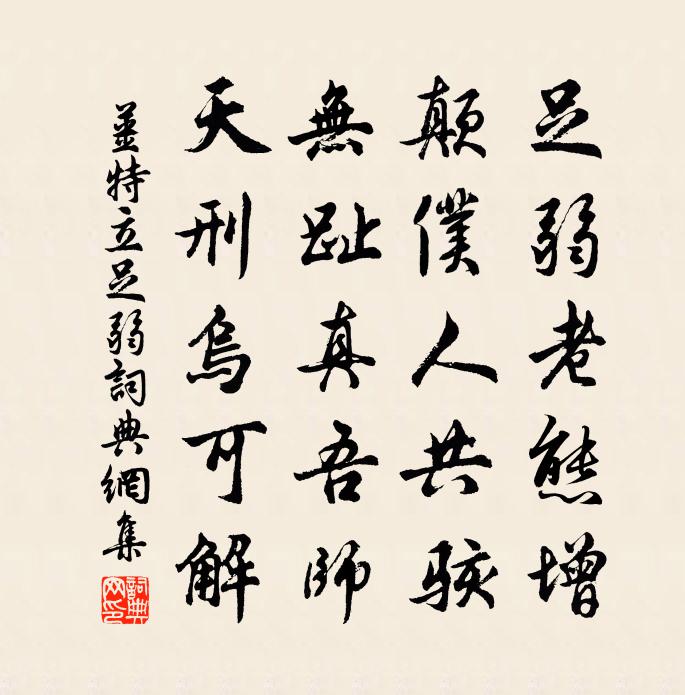 足弱老態增
顛僕人共駭
無趾真吾師
天刑烏可解
薑特立足弱詞典網集
詞典
网印